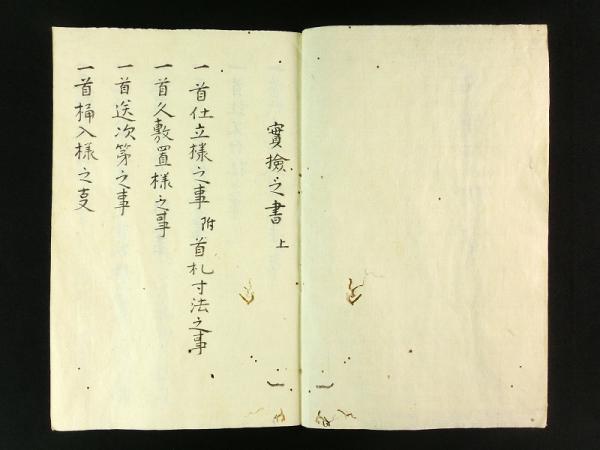 實撿之書 上
一 首仕立様之事 附 首札寸法之事
一 首久敷置様之事
一 首送次第之事
一 首桶入様之支